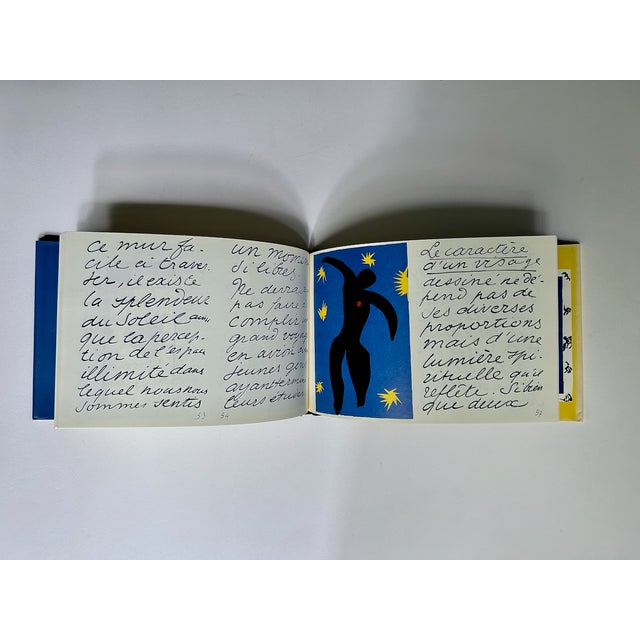 ce mur fa-
cile à traver-
ser, il existe
la splendeur
du soleil ainsi
que la percep-
tion de l'espace
illimité dans
lequel nous nous
sommes sentis
53
un momen
si libres.
Ne devrai
pas faire
complir un
grand voyage
en avion aux
jeunes gens
ayant termin
leurs études
54
Le caractère
d'un visage
dessiné ne dé-
pend pas de
ses diverses
proportions
mais d'une
lumière spi-
rituelle qu'il
reflète. Si bien
que deux
57